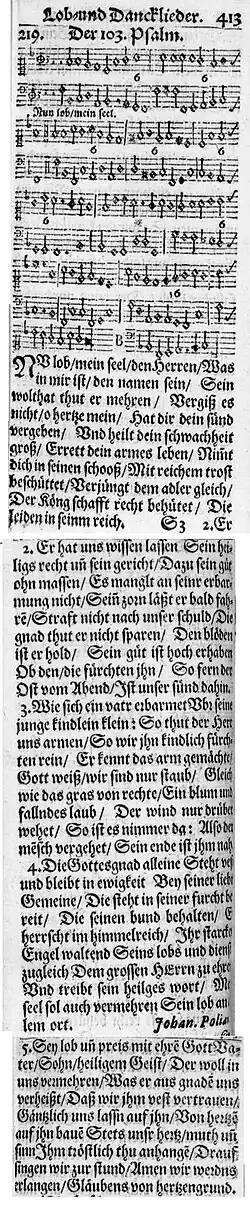 Lob-und Dancklieder. 413
219. Der 103. Psalm.
6 6
Nun lob/mein seel.
6 6
6
6
6
B
NUn lob/mein seel/den Herren/Was
in mir ist/den namen sein/ Sein
wolthat thut er mehren/ Vergiß es
nicht/o hertze mein/ Hat dir dein sünd
vergeben/ Vnd heilt dein schwachheit
groß/ Errett dein armes leben/ Nim̄t
dich in seinen schooß/Mit reichem trost
beschüttet/Verjüngt dem adler gleich/
Der Köng schafft recht behütet/ Die
leiden in seinm reich. S3 2.Er
2. Er hat uns wissen lassen Sein hei-
ligs recht uñ sein gericht/Dazu sein güt
ohn massen/ Es manglt an seinr erbar-
mung nicht/Seiñ zorn läßt er bald fah-
rē/Straft nicht nach unser schuld/Die
gnad thut er nicht sparen/ Den blöden
ist er hold/ Sein güt ist hoch erhaben
Ob den/die fürchten jhn/ So fern der
Ost vom Abend/Ist unser sünd dahin.
3. Wie sich ein vatr erbarmet Vbr seine
junge kindlein klein: So thut der Herr
uns armen/So wir jhn kindlich fürch-
ten rein/ Er kennt das arm gemächte/
Gott weiß/wir sind nur staub/ Gleich
wie das gras von rechte/Ein blum und
fallndes laub/ Der wind nur drüber
wehet/ So ist es nimmer da: Also der
mēsch vergehet/Sein ende ist jhm nah.
4. Die Gottesgnad alleine Steht vest
und bleibt in ewigkeit Bey seiner liebē
Gemeine/ Die steht in seiner furcht be-
reit/ Die seinen bund behalten/ Er
herrscht im himmelreich/ Ihr starcke
Engel waltend Seins lobs und dienst
zugleich Dem grossen HErrn zu ehrē
Vnd treibt sein heilges wort/ Mein
seel sol auch vermehren Sein lob an al-
lem ort. Johan. Polia
5. Sey lob uñ preis mit ehrē Gott Va-
ter/Sohn/heiligem Geist/ Der woll in
uns vermehren/Was er aus gnadē uns
verheißt/ Daß wir jhm vest vertrauen/
Gäntzlich uns lassn auf jhn/ Von hertzē
auf jhn bauē Stets unsr hertz/muth uñ
sinn Ihm tröstlich thu anhangē/ Drauf
singen wir zur stund/Amen wir werdns
erlangen/Gläubens von hertzengrund.